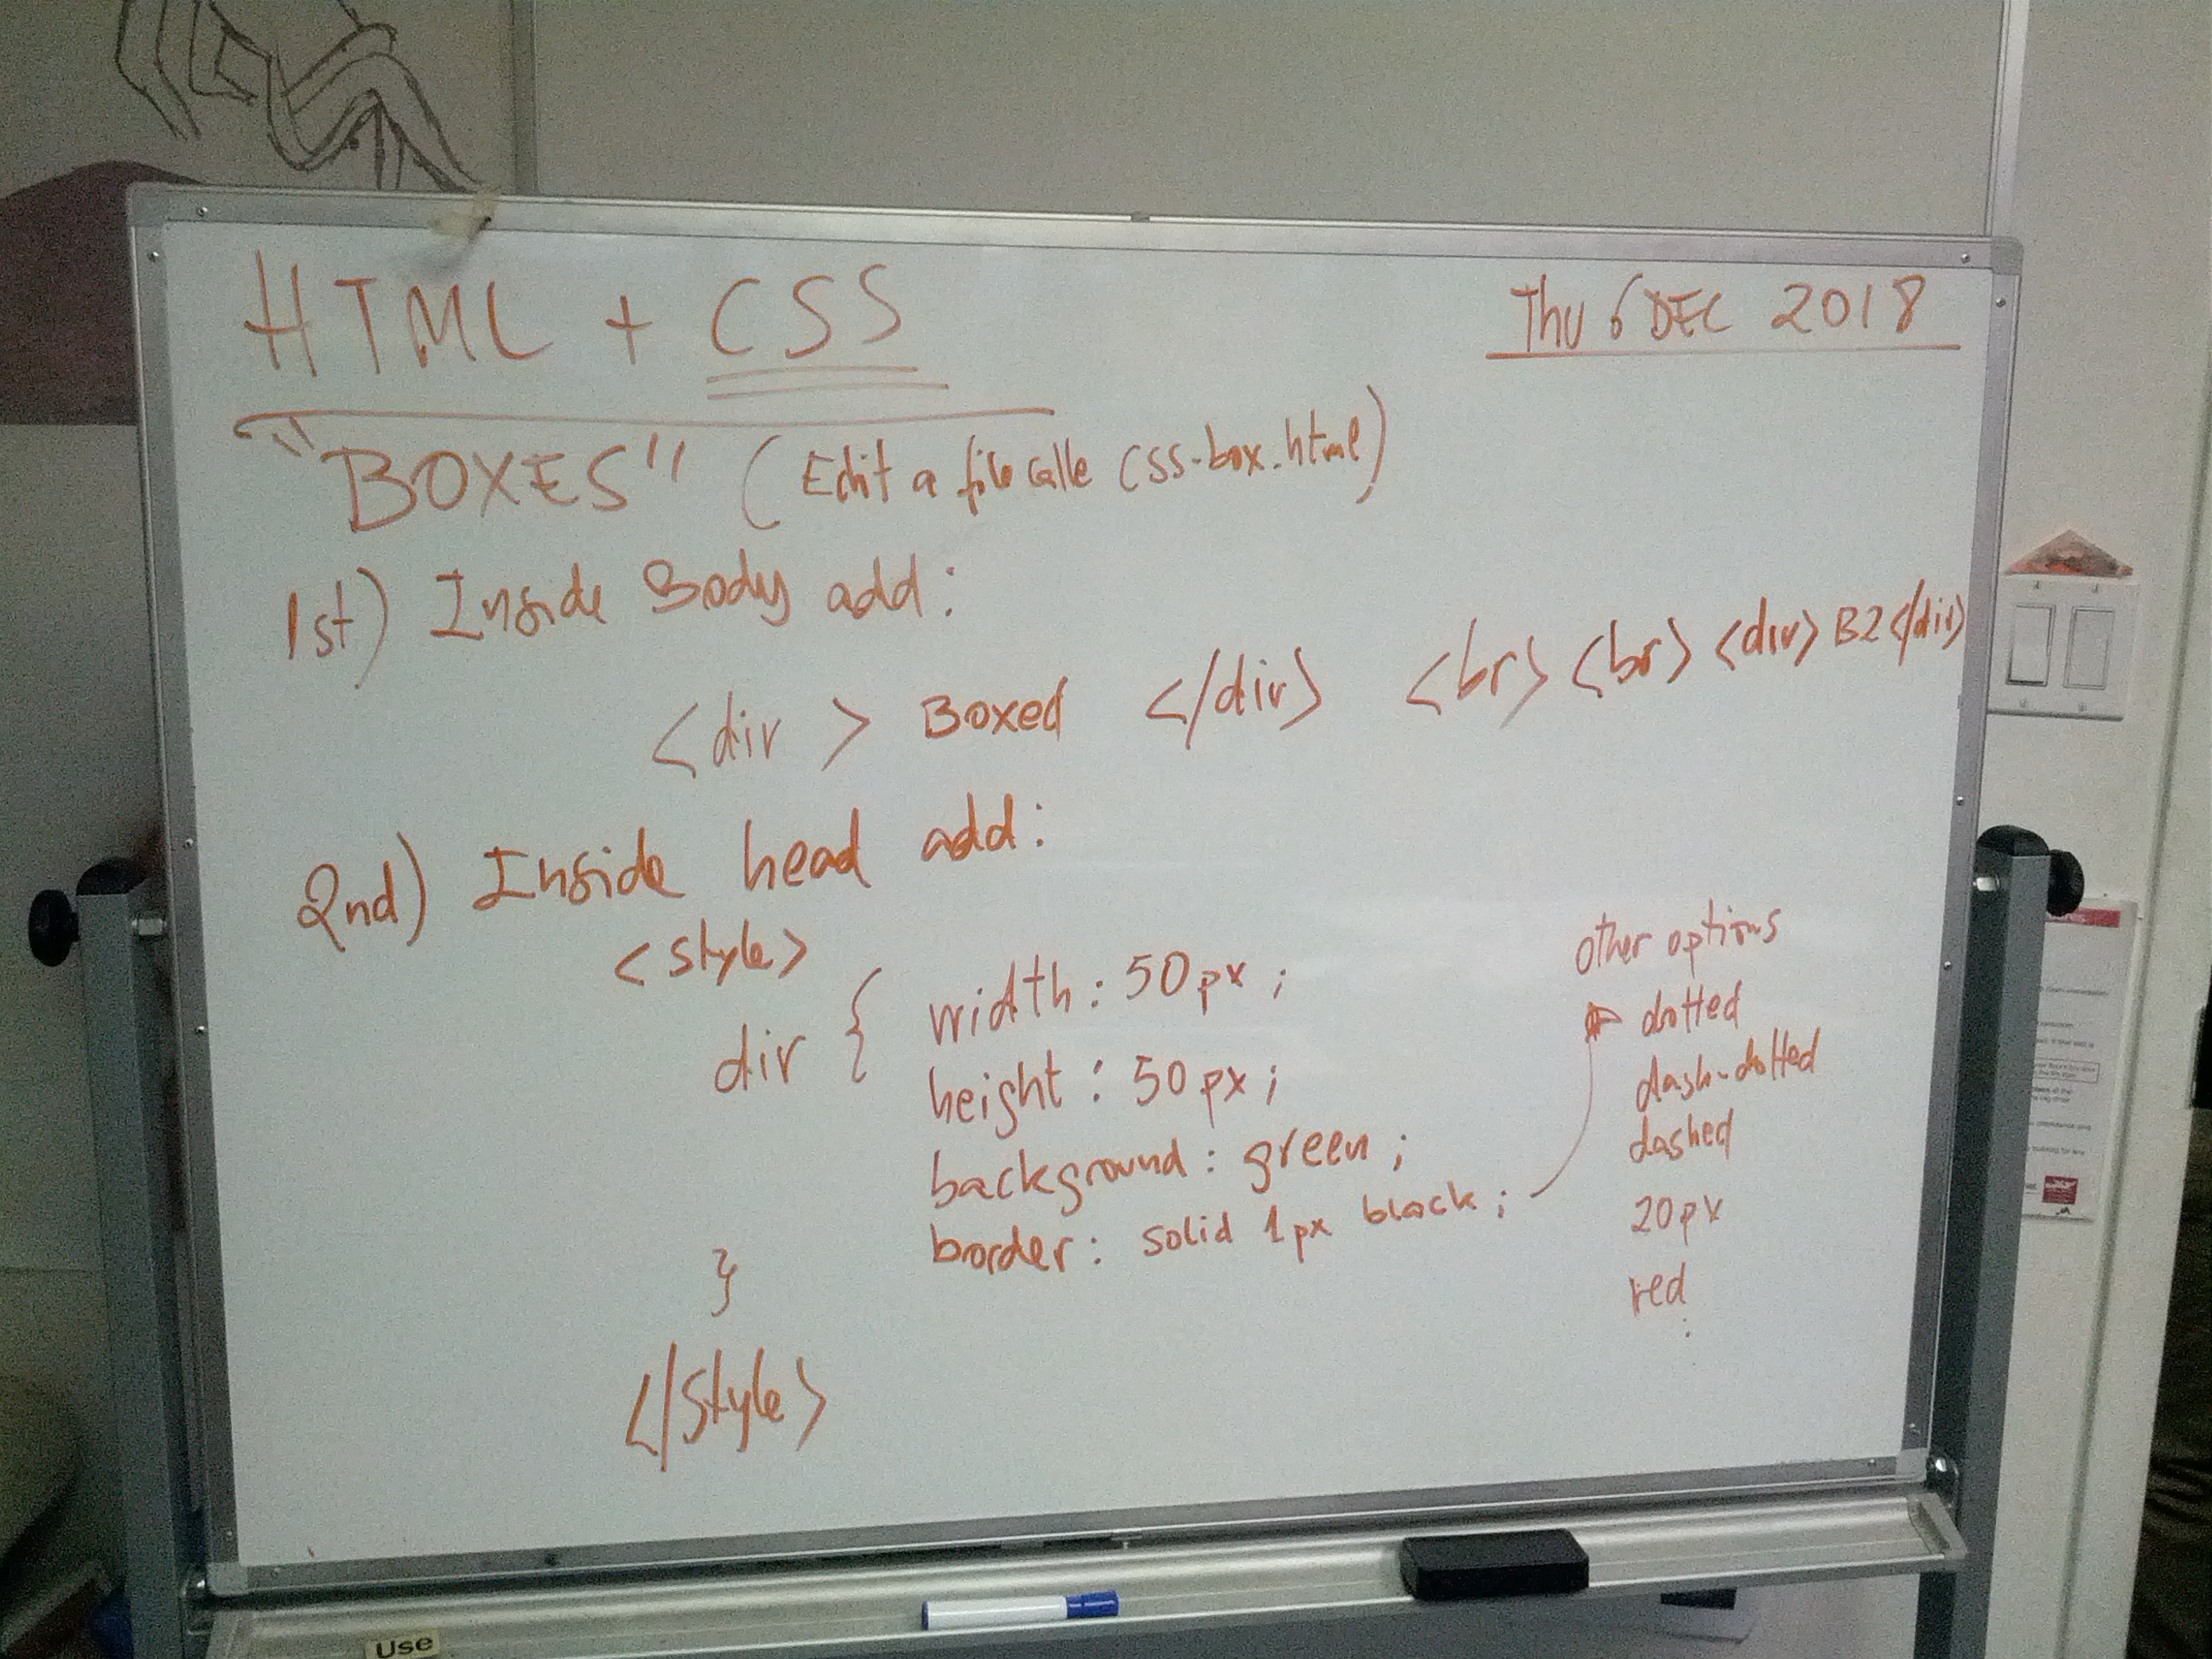 HTML + CSS
Thu 6 DEC 2018
"BOXES" (Edit a file calle css-box.html)
1st) Inside Body add:
<div > Boxed </div> <br> <br> <div> B2 </div>
2nd) Inside head add:
<style>
div { width: 50px;
height: 50px;
background: green;
border: solid 1px black;
}
</style>
other options
dotted
dash-dotted
dashed
20px
red
Use